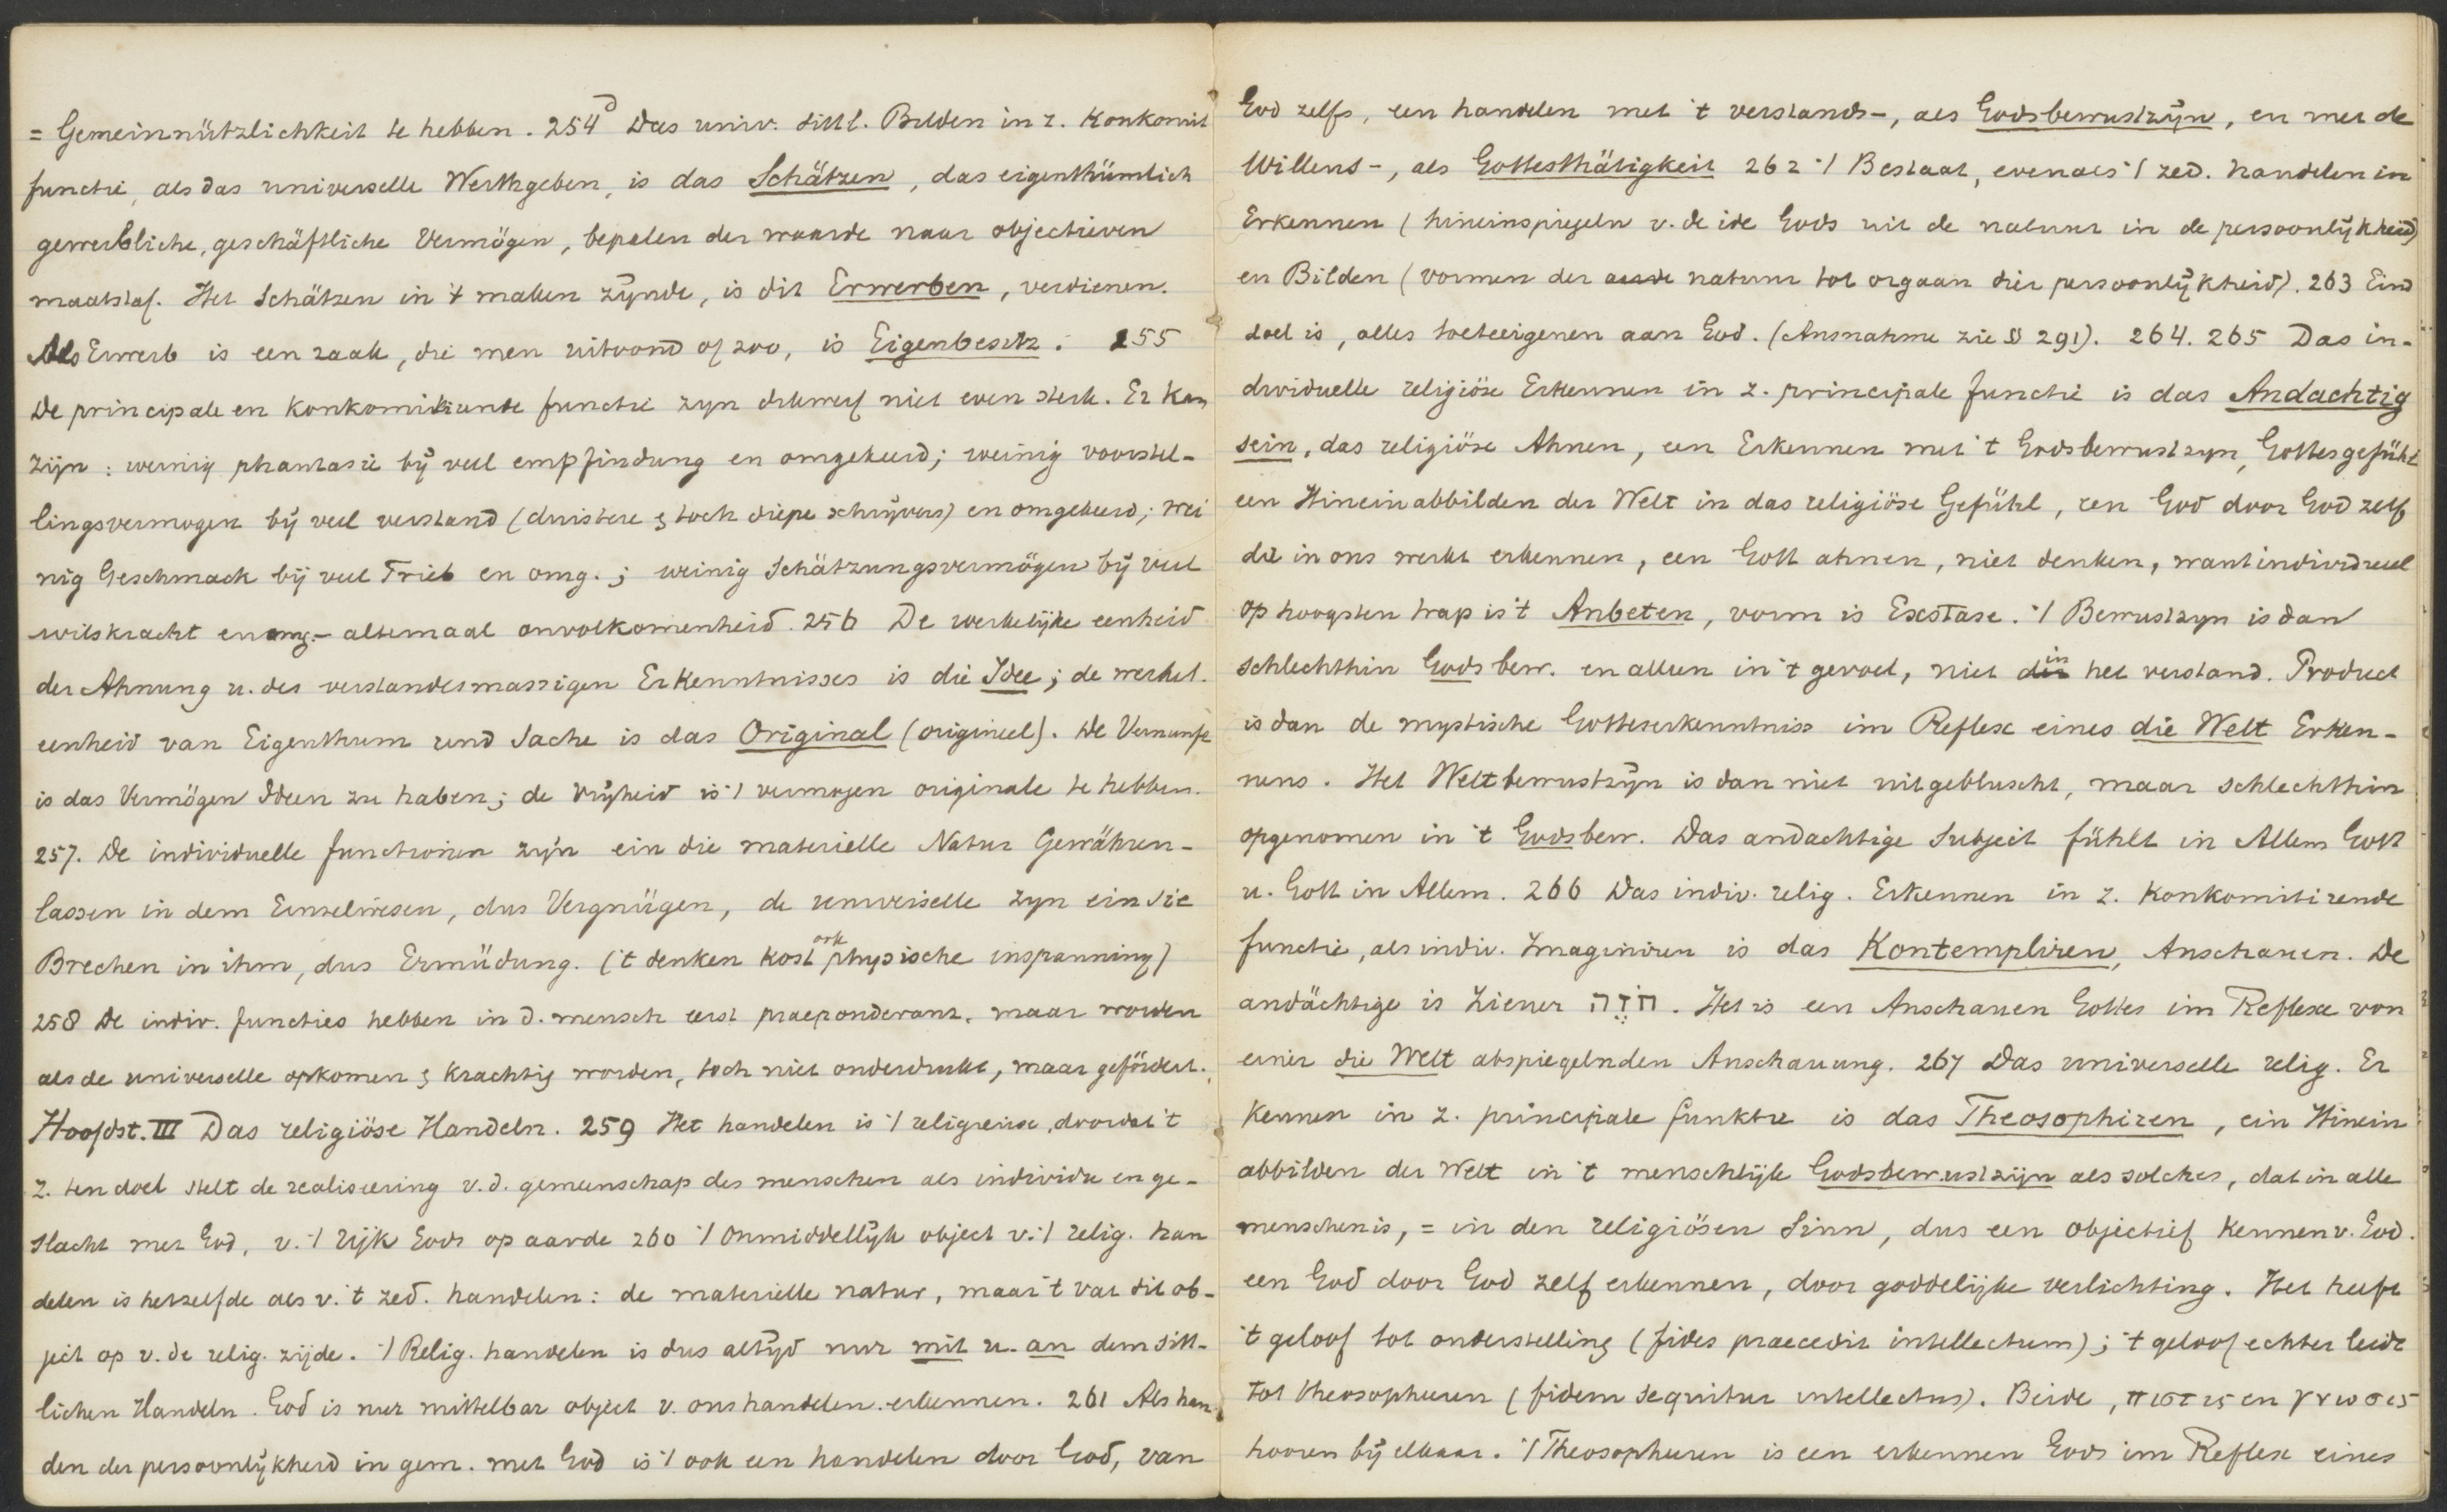 = Gemeinnützlichkeit te hebben. 254d Das univ. sittl. Bilden in z. Konkomit
functie, als das universelle Werthgeben, is das Schätzen, das eigenthümlich
gewerbliche, geschäftliche Vermögen, bepalen der waarde naar objectieven
maatstaf. Het Schätzen in 't maken zijnde, is dit Erwerben, verdienen.
Als Erwerb is een zaak, die men uitvond of zoo, is Eigenbesitz. 255
De principale en konkomitirende functie zyn dikwerf niet even sterk. Er kan
zijn: weinig phantasie bij veel empfindung en omgekeerd; weinig voorstel-
lingsvermogen bij veel verstand (duistere & toch diepe schrijvers) en omgekeerd; wei
nig Geschmack bij veel Trieb en omg.; weinig Schätzungsvermögen bij veel
wilskracht en omg. - altemaal onvolkomenheid. 256 De werkelijke eenheid
der Ahnung u. des verstandesmassigen Erkenntnisses is die Idee; de werkel.
eenheid van Eigenthum und Sache is das Original (origineel). De Vernunft
is das Vermögen Ideen zu haben; de vrijheid is 't vermogen originale te hebben.
257. De individuelle functionen zijn ein die materielle Natur Gewähren-
lassen in dem Einzelwesen, dus Vergnügen, de universelle zyn ein sie
Brechen in ihm, dus Ermüdung. ('t denken kost ook physische inspanning)
258 De indiv. functies hebben in d. mensch eerst praeponderanz, maar worden
als de universelle opkomen & krachtig worden, toch niet onderdrukt, maar gefördert.
Hoofdst. III Das religiöse Handeln. 259 Het handelen is 't religieuse, doordat 't
z. ten doel stelt de realiseering v.d. gemeenschap des menschen als individu en ge-
slacht met God, v. 't rijk Gods op aarde 260 't Onmiddellijk object v. 't relig. han
delen is hetzelfde als v. 't zed. handelen: de materielle natur, maar 't vat dit ob-
ject op v. de relig. zijde. 't Relig. handelen is dus altijd nur mit u. an dem sitt-
lichen Handeln. God is nur mittelbar object v. ons handelen. erkennen. 261 Als han
den der persoonlijkheid in gem. met God is 't ook een handelen door God, van
God zelfs, een handelen met 't verstands-, als Godsbewustzijn, en met de
Willens-, als Gottesthätigkeit 262 't Bestaat, evenals 't zed. handelen in
Erkennen (hineinspiegeln v. de idee Gods uit de natuur in de persoonlijkheid)
en Bilden (vormen der aarde natuur tot orgaan dier persoonlijkheid). 263 Eind
doel is, alles toeteeigenen aan God. (Ausnahme zie § 291). 264. 265 Das in-
dividuelle religiöse Erkennen in z. principale functie is das Andachtig
sein, das religiöse Ahnen, een Erkennen met 't Godsbewustzyn, Gottesgefühl
een Hineinabbilden der Welt in das religiöse Gefühl, een God door God zelf
die in ons werkt erkennen, een Gott ahnen, niet denken, want individueel
op hoogsten trap is 't Anbeten, vorm is Exstase. 't Bewustzyn is dan
schlechthin Gods bew. en alleen in 't gevoel, niet in het verstand. Product
is dan de mystische Gotteserkenntniss im Reflex eines die Welt Erken-
nens. Het Weltbewustzijn is dan niet uitgebluscht, maar schlechthin
opgenomen in 't Godsbew. Das andachtige Subject fühlt in Allem Gott
u. Gott in Allem. 266 Das indiv. relig. Erkennen in z. konkomitirende
functie, als indiv. Imaginiren is das Kontempliren, Anschauen. De
andächtige is Ziener חֹזֶה. Het is een Anschauen Gottes im Reflexe von
einer die Welt abspiegelnden Anschauung. 267 Das universelle relig. Er
kennen in z. principale funktie is das Theosophiren, ein Hinein
abbilden der Welt in 't menschlijke Godsbewustzijn als solches, dat in alle
menschen is, = in den religiösen Sinn, dus een objectief kennen v. God.
een God door God zelf erkennen, door goddelijke verlichting. Het heeft
't geloof tot onderstelling (fides praecedit intellectum); 't geloof echter leidt
tot theosopheeren (fidem sequitur intellectus). Beide, πιστις en γνωσις
hooren bij elkaar. 't Theosopheeren is een erkennen Gods im Reflex eines